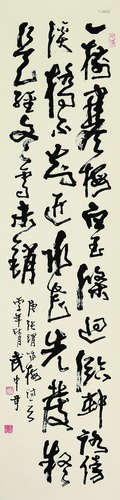 一樹寒梅白玉條迥臨邨路傍
溪橋不知近水花先發疑
是經冬雪未銷
唐張謂梅詩
武中奇